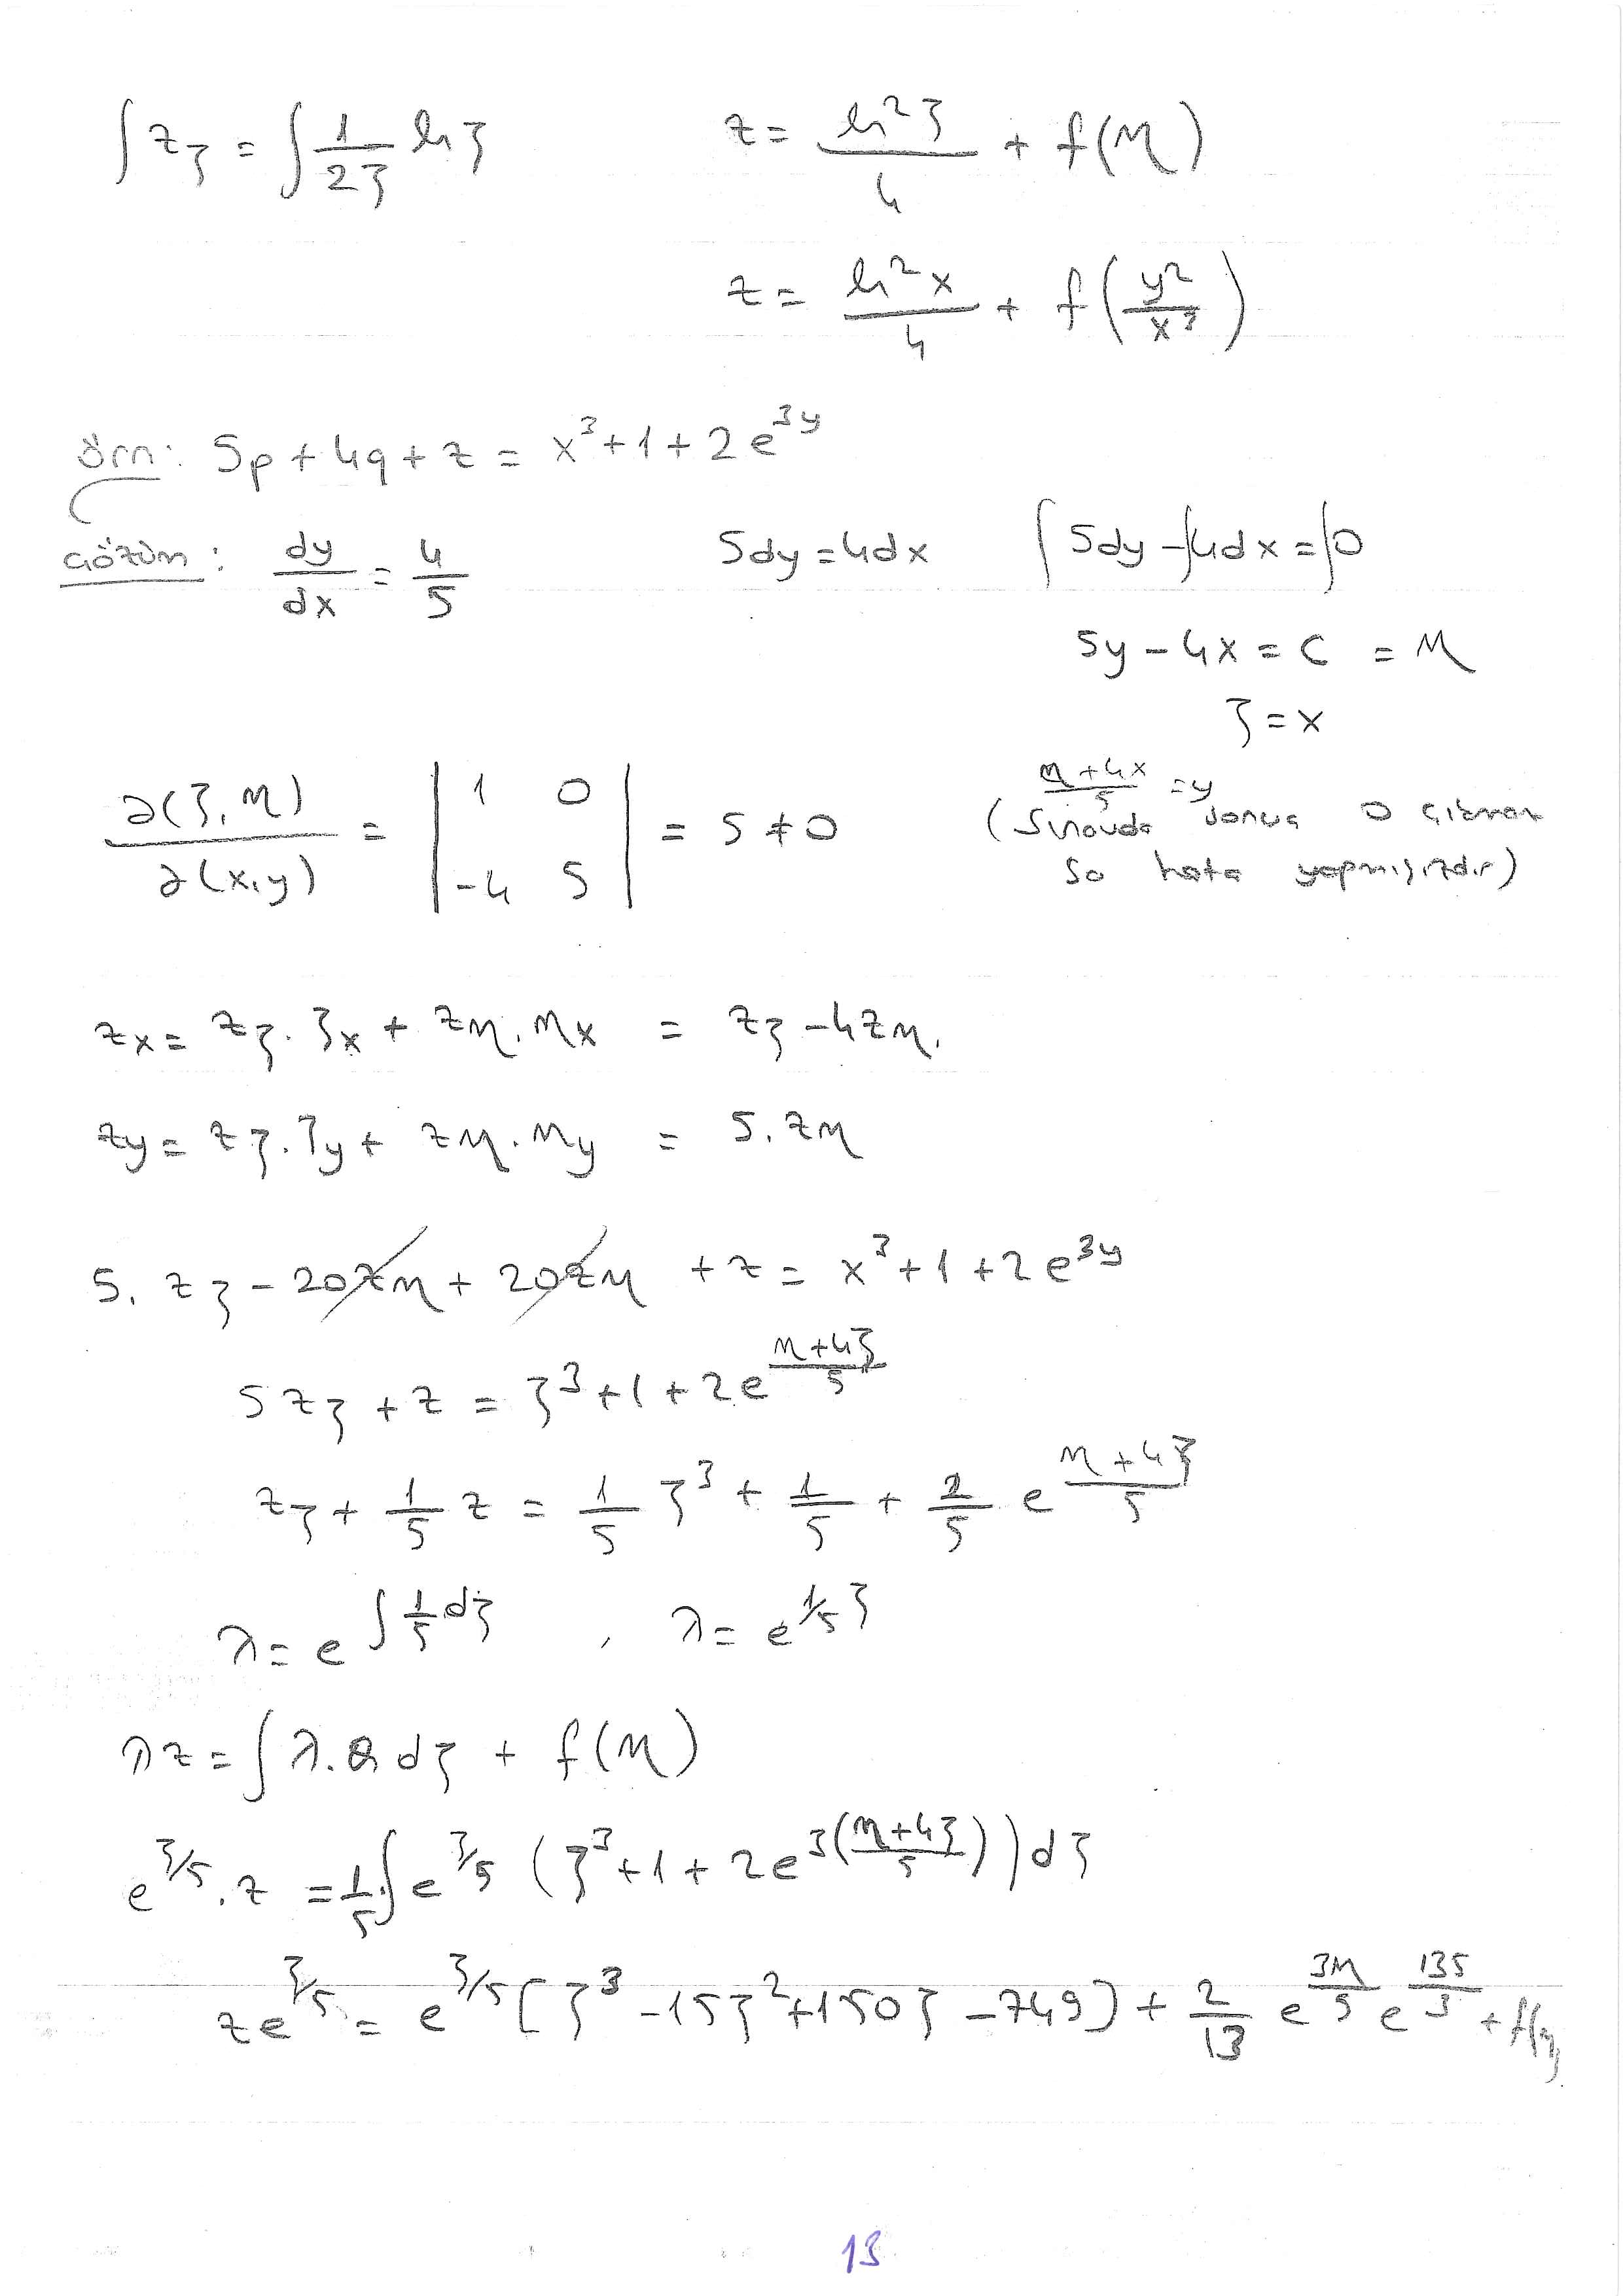 ∫ z_ξ = ∫ 1/(2ξ) ln ξ    z = ln²ξ/4 + f(η)
z = ln²x/4 + f(y²/x³)
örn: 5p + 4q + z = x³ + 1 + 2e^{3y}
çözüm: dy/dx = 4/5    5dy = 4dx    ∫5dy − ∫4dx = ∫0
5y − 4x = C = η
ξ = x
(η + 4x)/5 = y
∂(ξ, η)/∂(x, y) = | 1 0 ; −4 5 | = 5 ≠ 0    (Sınavda sonuç 0 çıkmaz
sa hata yapmışızdır)
z_x = z_ξ . ξ_x + z_η . η_x = z_ξ − 4z_η .
z_y = z_ξ . ξ_y + z_η . η_y = 5 . z_η
5 . z_ξ − 20z_η + 20z_η + z = x³ + 1 + 2e^{3y}
5z_ξ + z = ξ³ + 1 + 2e^{(η+4ξ)/5}
z_ξ + 1/5 z = 1/5 ξ³ + 1/5 + 2/5 e^{(η+4ξ)/5}
λ = e^{∫ 1/5 dξ} , λ = e^{1/5 ξ}
λz = ∫ λ . Q dξ + f(η)
e^{ξ/5} . z = 1/5 . ∫ e^{ξ/5} (ξ³ + 1 + 2e^{3((η+4ξ)/5)}) dξ
z e^{ξ/5} = e^{ξ/5} [ξ³ − 15ξ² + 150ξ − 749] + 2/13 e^{3η/5} e^{135/3} + f(η)
13